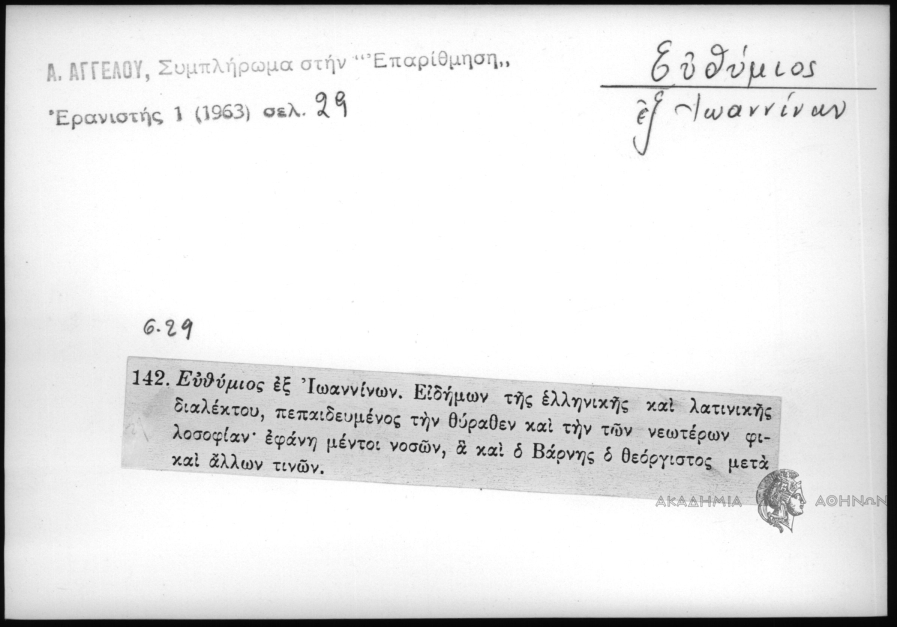 Α. ΑΓΓΕΛΟΥ, Συμπλήρωμα στήν "Ἐπαρίθμηση„
Ἐρανιστής 1 (1963) σελ. 29
Εὐθύμιος
ἐξ Ἰωαννίνων
6.29
142. Εὐθύμιος ἐξ Ἰωαννίνων. Εἰδήμων τῆς ἑλληνικῆς καὶ λατινικῆς
διαλέκτου, πεπαιδευμένος τὴν θύραθεν καὶ τὴν τῶν νεωτέρων φι-
λοσοφίαν· ἐφάνη μέντοι νοσῶν, ἃ καὶ ὁ Βάρνης ὁ θεόργιστος μετὰ
καὶ ἄλλων τινῶν.
ΑΚΑΔΗΜΙΑ ΑΘΗΝΩΝ